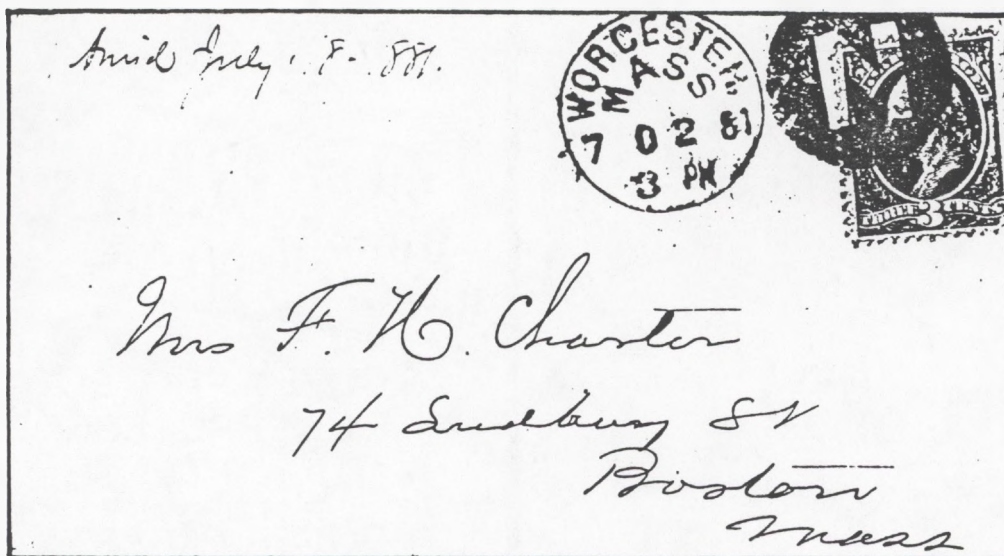 July 8. 881.
WORCESTER,
MASS
7 02 81
3 PM
THREE 3 CENTS
Mrs F. H. Charter
74 Sudbury St
Boston
Mass